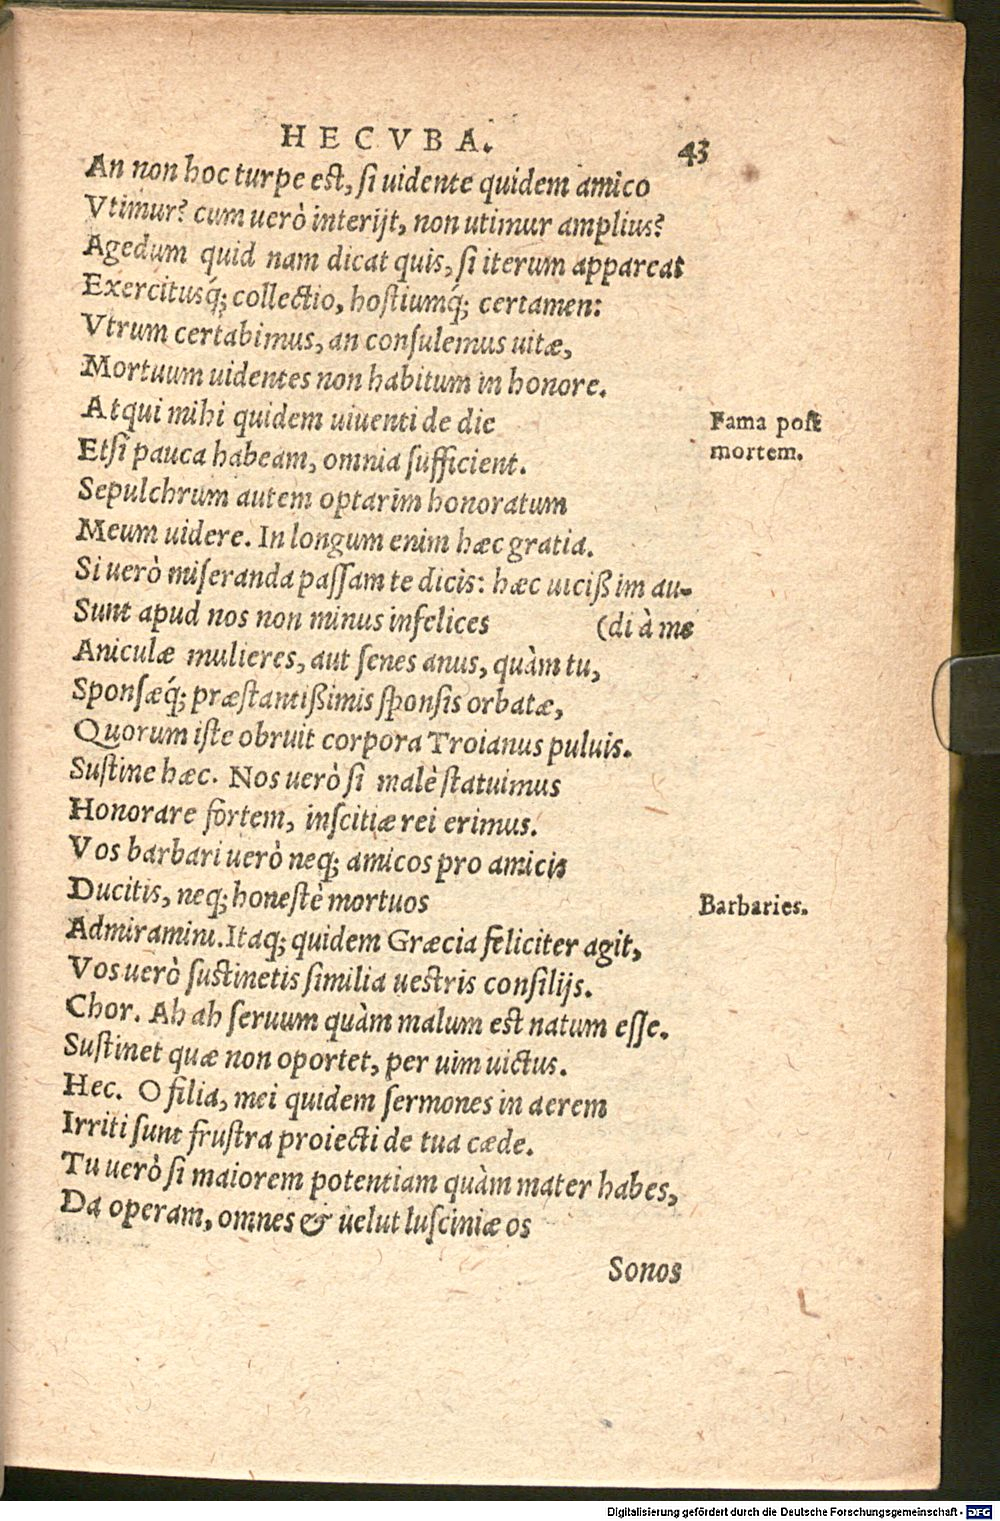 HECVBA. 43
An non hoc turpe est, si uidente quidem amico
Vtimur? cum uerò interijt, non utimur amplius?
Agedum quid nam dicat quis, si iterum appareat
Exercitusq́; collectio, hostiumq́; certamen:
Vtrum certabimus, an consulemus uitæ,
Mortuum uidentes non habitum in honore.
Atqui mihi quidem uiuenti de die
Fama post
Etsi pauca habeam, omnia sufficient.
mortem.
Sepulchrum autem optarim honoratum
Meum uidere. In longum enim hæc gratia.
Si uerò miseranda passam te dicis: hæc uicißim au-
Sunt apud nos non minus infelices (di à me
Aniculæ mulieres, aut senes anus, quàm tu,
Sponsæq́; præstantißimis sponsis orbatæ,
Quorum iste obruit corpora Troianus puluis.
Sustine hæc. Nos uerò si malè statuimus
Honorare fortem, inscitiæ rei erimus.
Vos barbari uerò neq; amicos pro amicis
Ducitis, neq; honestè mortuos
Barbaries.
Admiramini. Itaq; quidem Græcia feliciter agit,
Vos uerò sustinetis similia uestris consilijs.
Chor. Ah ah seruum quàm malum est natum esse.
Sustinet quæ non oportet, per uim uictus.
Hec. O filia, mei quidem sermones in aerem
Irriti sunt frustra proiecti de tua cæde.
Tu uerò si maiorem potentiam quàm mater habes,
Da operam, omnes & uelut lusciniæ os
Sonos
Digitalisierung gefördert durch die Deutsche Forschungsgemeinschaft - DFG